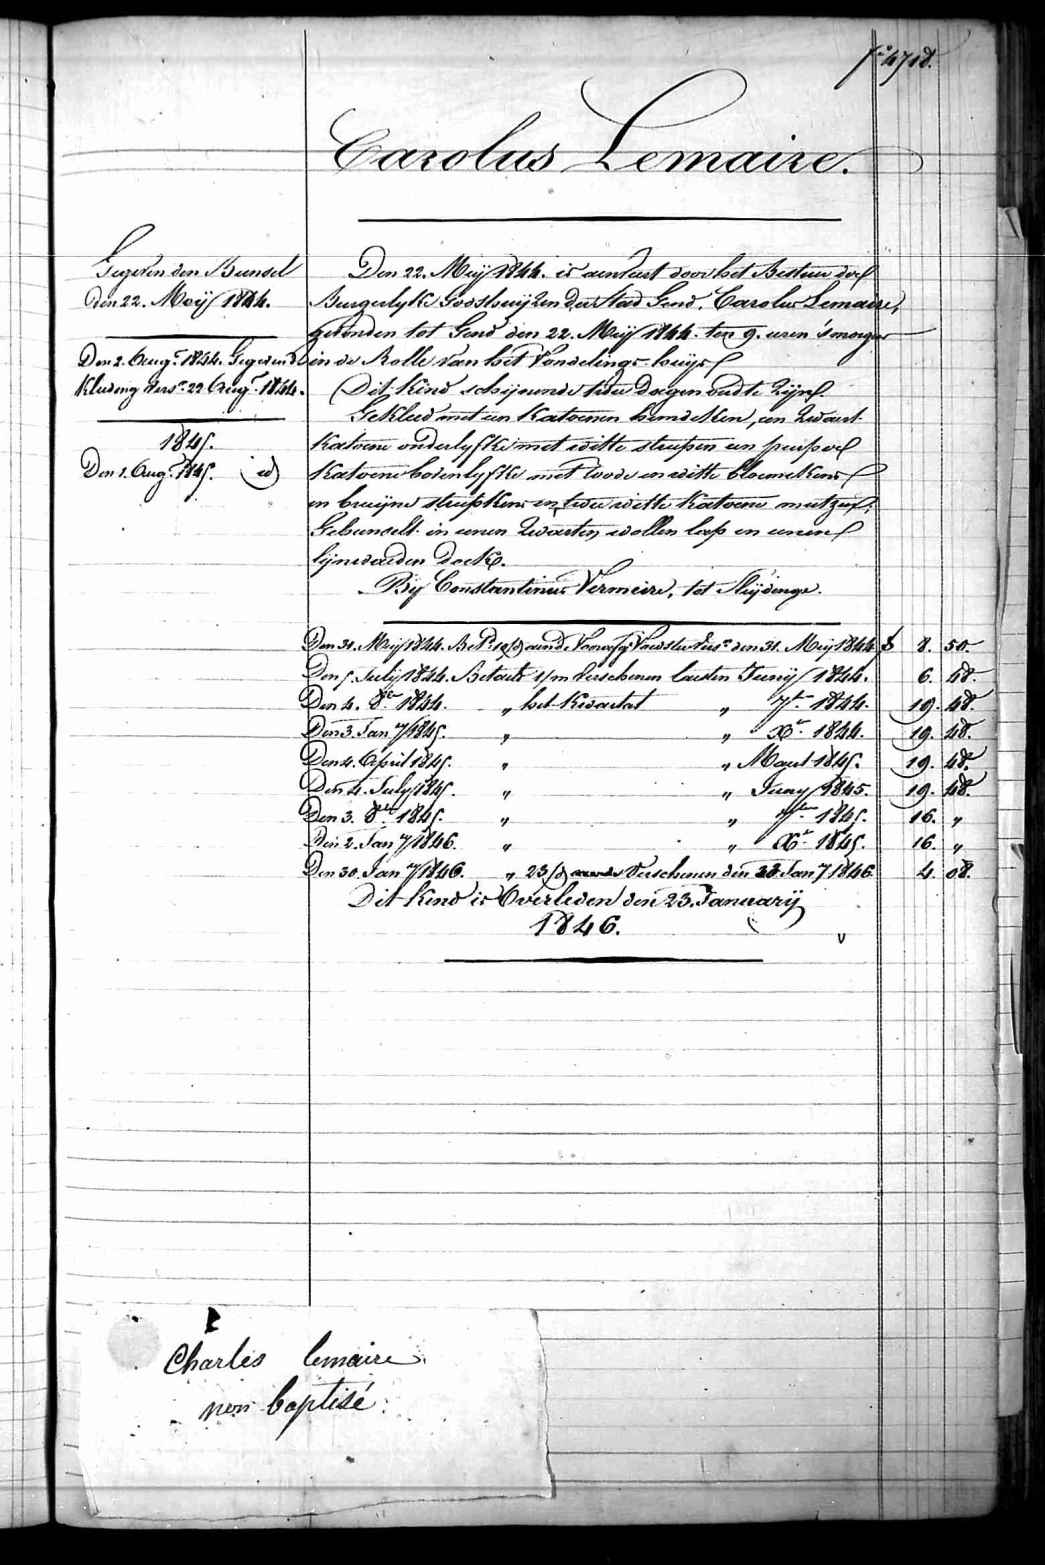 f° 4718.
Carolus Lemaire.
Gegeven den Bunsel
den 22. Meij 1844.
Den 2. Aug.t 1844. Gegeven de
Kleding vers.n 22 Aug.t 1844.
1845.
Den 1. Aug.t 1845. id
Den 22. Meij 1844. is aenveirt door het Bestuer der
Burgerlyke Godshuijzen der Stad Gend, Carolus Lemaire,
gevonden tot Gend den 22. Meij 1844. ten 9. uren 's morgens
in de Rolle van het Vondelings-huijs
Dit kind scheijnende twee dagen oudt te zijn
Gekleed met een katoenen hemdeken, een zwart
katoene onderlyfke met witte streepen een purper
katoene bovenlyfke met roode en witte bloemekens
en bruijne streepkens en twee witte katoene mutzen;
Gebunselt in eenen zwarten wollen lap en eenen
lijnwaeden doek.
Bij Constantinus Vermeire, tot Sleijdinge.
Den 31. Meij 1844. Bet.d 10/d aen de Voorschr. Voedster vers.n den 31. Meij 1844 f 8. 50.
Den 5. July 1844. Betaelt 1/m verschenen laesten Junij 1844. 6. 48.
Den 4. 8.bre 1844. " het Kwartael " 7.bre 1844. 19. 48.
Den 3. Jan.y 1845. " " X.r 1844. 19. 48.
Den 4. April 1845. " " Maert 1845. 19. 48.
Den 4. July 1845. " " Juny 1845. 19. 48.
Den 3. 8.bre 1845. " " 7.bre 1845. 16. "
Den 2. Jan.y 1846. " " X.r 1845. 16. "
Den 30. Jan.y 1846. " 23/d verschenen den 23. Jan.y 1846 4. 08.
Dit kind is Overleden den 23. Januarij
1846.
v
Charles lemaire
non baptisé